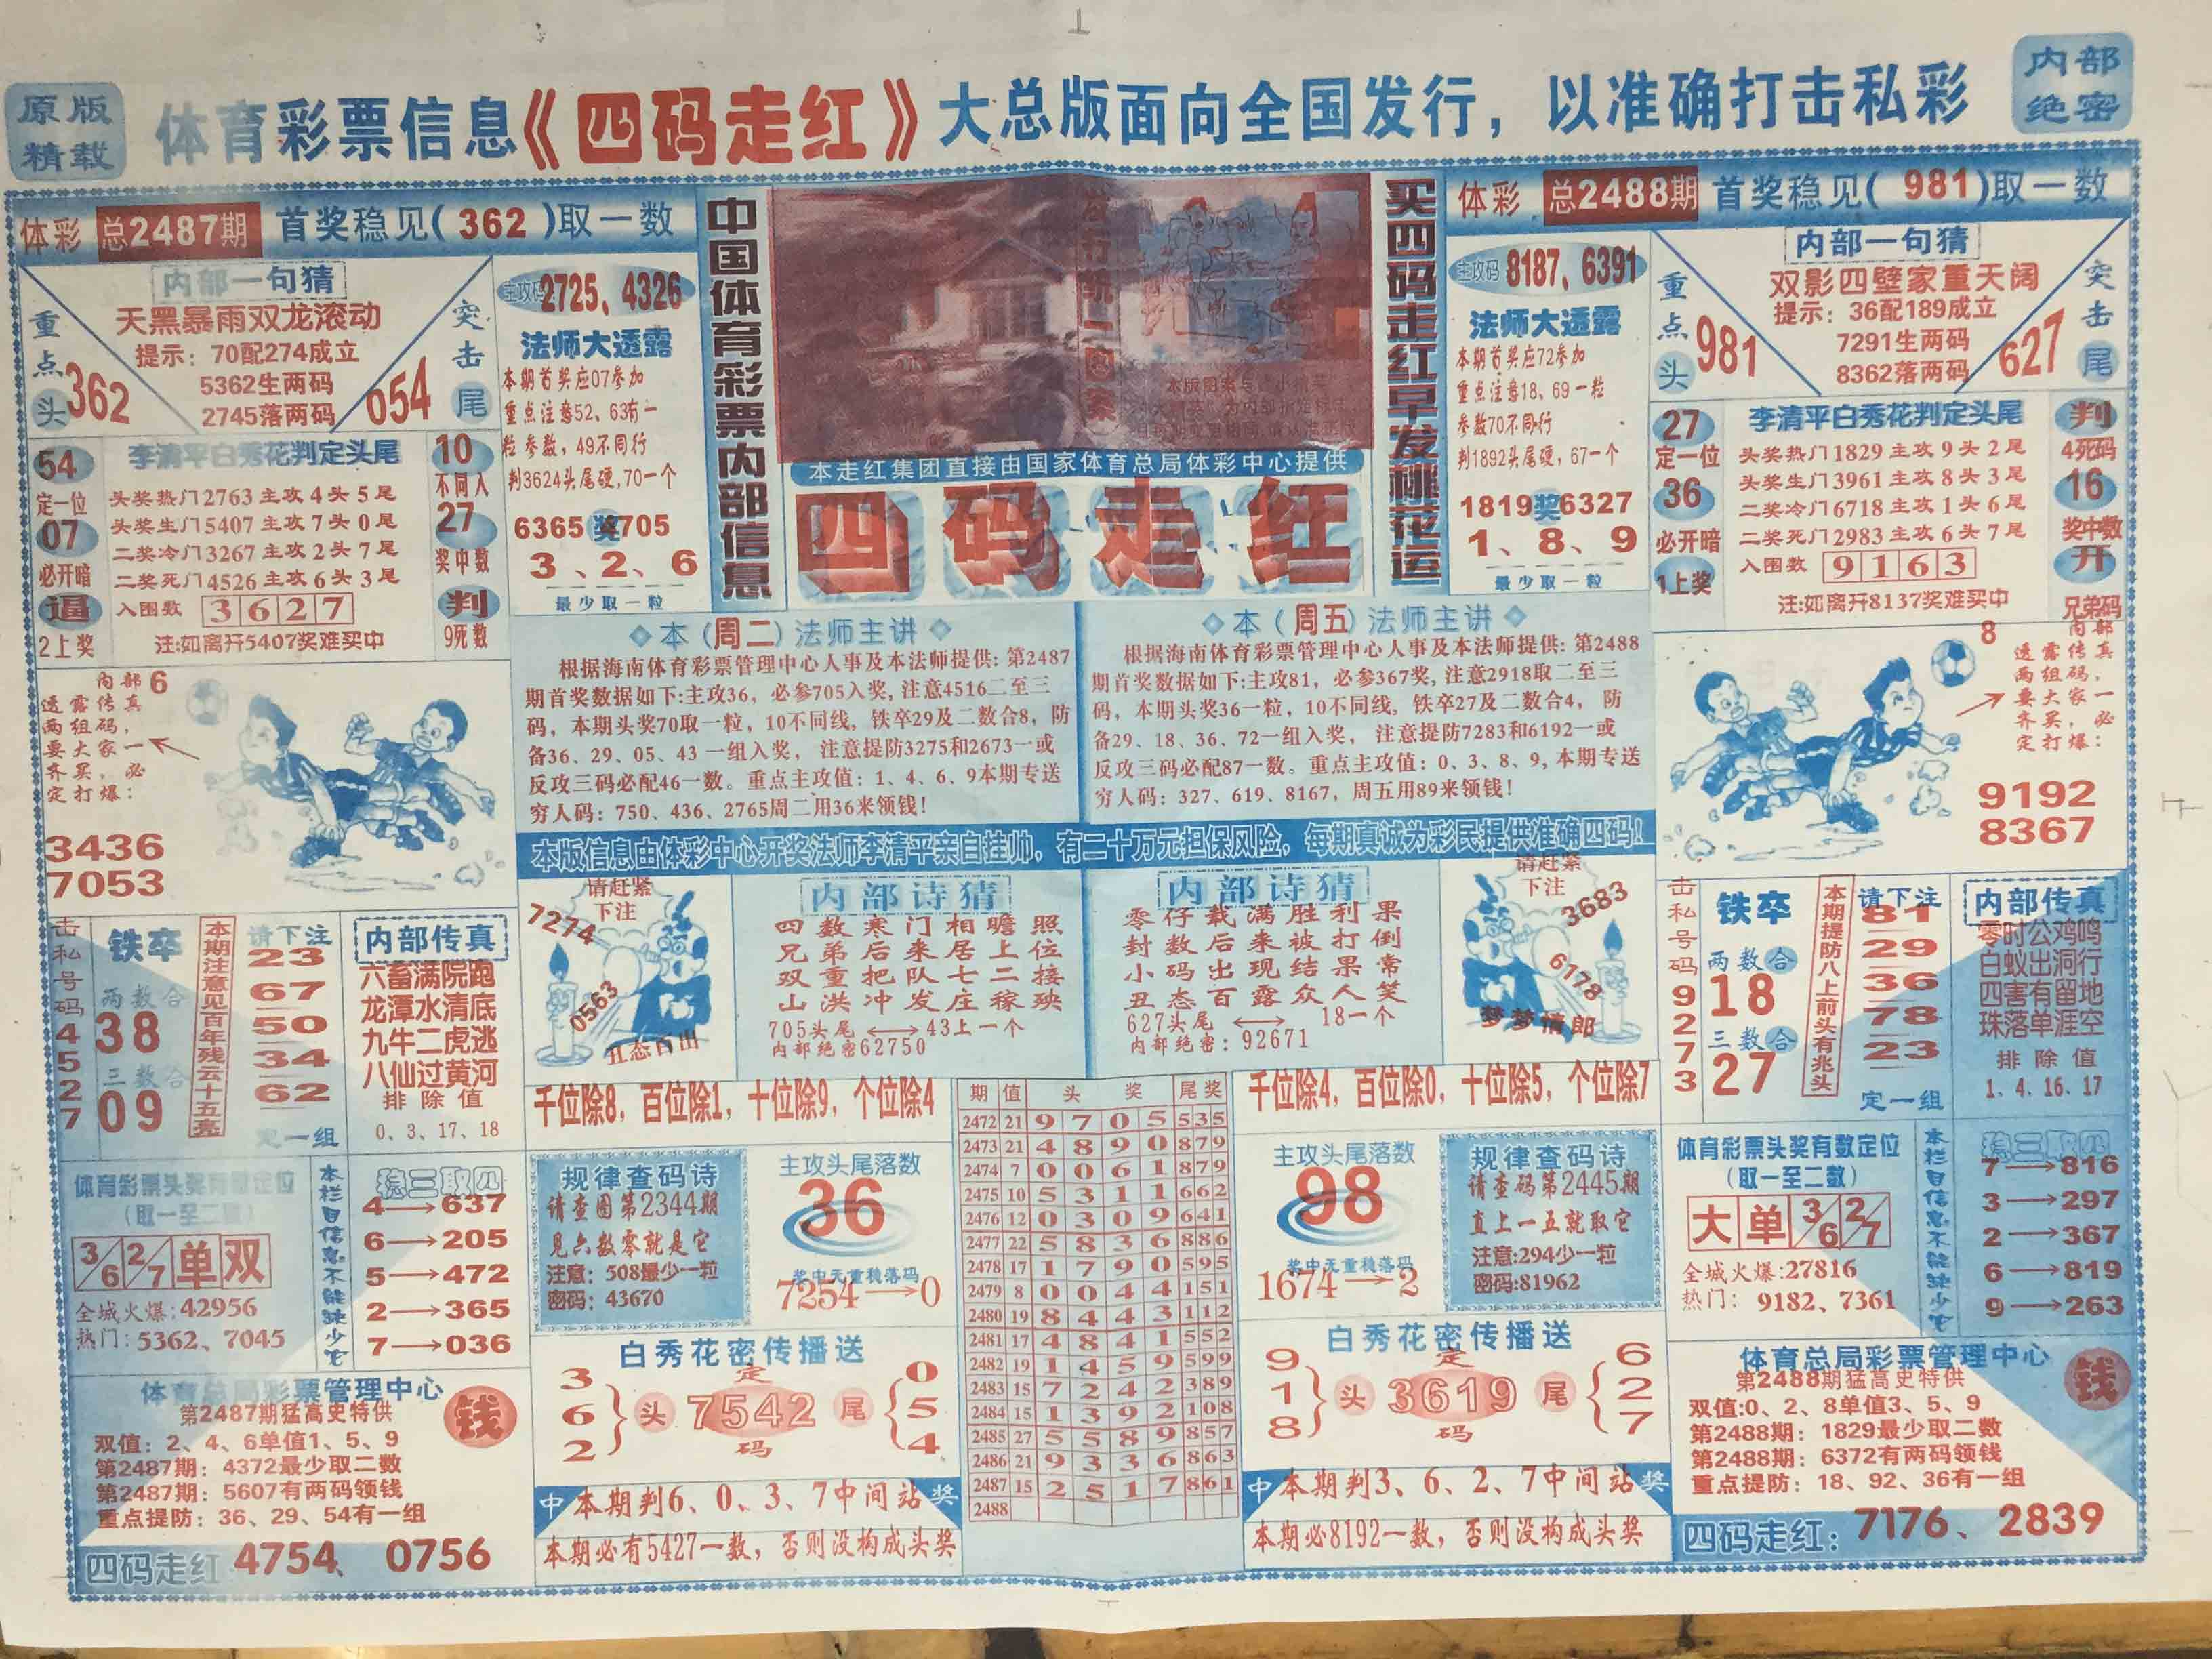 原版
精载
体育彩票信息《四码走红》大总版面向全国发行，以准确打击私彩
内部
绝密
体彩 总2487期 首奖稳见(362)取一数
内部一句猜
天黑暴雨双龙滚动
提示：70配274成立
5362生两码
2745落两码
重点头
362
突击尾
054
主攻码2725、4326
法师大透露
本期首奖应07参加
重点注意52、63有一
粒参数，49不同行
判3624头尾硬,70一个
6365奖705
3、2、6
最少取一粒
54
定一位
07
必开暗
逼
2上奖
李清平白秀花判定头尾
头奖热门2763主攻4头5尾
头奖生门5407主攻7头0尾
二奖冷门3267主攻2头7尾
二奖死门4526主攻6头3尾
入围数 3627
注:如离开5407奖难买中
10
不同入
27
奖中数
判
9死数
中国体育彩票内部信息
本走红集团直接由国家体育总局体彩中心提供
四码走红
买四码走红早发桃花运
体彩 总2488期 首奖稳见(981)取一数
主攻码8187,6391
法师大透露
本期首奖应72参加
重点注意18、69一粒
参数70不同行
判1892头尾硬，67一个
1819奖6327
1、8、9
最少取一粒
内部一句猜
双影四壁家重天阔
提示：36配189成立
7291生两码
8362落两码
重点头
981
突击尾
627
27
定一位
36
必开暗
1上奖
李清平白秀花判定头尾
头奖热门1829主攻9头2尾
头奖生门3961主攻8头3尾
二奖冷门6718主攻1头6尾
二奖死门2983主攻6头7尾
入围数 9163
注:如离开8137奖难买中
判
4死码
16
奖中数
开
兄弟码
内部6
透露传真
两组码，
要大家一
齐买，必
定打爆：
3436
7053
本(周二)法师主讲
根据海南体育彩票管理中心人事及本法师提供: 第2487
期首奖数据如下:主攻36，必参705入奖, 注意4516二至三
码，本期头奖70取一粒，10不同线, 铁卒29及二数合8，防
备36、29、05、43 一组入奖， 注意提防3275和2673一或
反攻三码必配46一数。重点主攻值：1、4、6、9本期专送
穷人码：750、436、2765周二用36来领钱！
本(周五)法师主讲
根据海南体育彩票管理中心人事及本法师提供: 第2488
期首奖数据如下:主攻81，必参367奖, 注意2918取二至三
码，本期头奖36一粒，10不同线, 铁卒27及二数合4， 防
备29、18、36、72一组入奖， 注意提防7283和6192一或
反攻三码必配87一数。重点主攻值：0、3、8、9, 本期专送
穷人码：327、619、8167，周五用89来领钱！
8
内部
透露传真
两组码，
要大家一
齐买，必
定打爆：
9192
8367
本版信息由体彩中心开奖法师李清平亲自挂帅，有二十万元担保风险，每期真诚为彩民提供准确四码！
击私号码4527
铁卒
两数合
38
三数合
09
本期注意见百年残云十五亮
请下注
23
67
50
34
62
定一组
内部传真
六畜满院跑
龙潭水清底
九牛二虎逃
八仙过黄河
排除值
0、3、17、18
请赶紧
下注
7274
0563
丑态百出
内部诗猜
四数寒门相瞻照
兄弟后来居上位
双重把队七二接
山洪冲发庄稼殃
705头尾⟷43上一个
内部绝密62750
内部诗猜
零仔载满胜利果
封数后来被打倒
小码出现结果常
丑态百露众人笑
627头尾⟷18一个
内部绝密：92671
请赶紧
下注
3683
6178
梦梦情郎
击私号码9273
铁卒
两数合
18
三数合
27
本期提防八上前头有兆头
请下注
81
29
36
78
23
定一组
内部传真
零时公鸡鸣
白蚁出洞行
四害有留地
珠落单涯空
排除值
1、4、16、17
千位除8，百位除1，十位除9，个位除4
千位除4，百位除0，十位除5，个位除7
期 值 头 奖 尾奖
2472 21 9 7 0 5 535
2473 21 4 8 9 0 879
2474 7 0 0 6 1 879
2475 10 5 3 1 1 662
2476 12 0 3 0 9 641
2477 22 5 8 3 6 886
2478 17 1 7 9 0 595
2479 8 0 0 4 4 151
2480 19 8 4 4 3 112
2481 17 4 8 4 1 552
2482 19 1 4 5 9 599
2483 15 7 2 4 2 389
2484 15 1 3 9 2 108
2485 27 5 5 8 9 857
2486 21 9 3 3 6 863
2487 15 2 5 1 7 861
2488
体育彩票头奖有数定位
(取一至二数)
3/6 2/7 单 双
全城火爆:42956
热门：5362、7045
本栏目信息不能缺少它
稳三取几
4→637
6→205
5→472
2→365
7→036
规律查码诗
请查图第2344期
见六数零就是它
注意：508最少一粒
密码：43670
主攻头尾落数
36
奖中无重稳落码
7254→0
主攻头尾落数
98
奖中无重稳落码
1674→2
规律查码诗
请查码第2445期
直上一五就取它
注意:294少一粒
密码:81962
体育彩票头奖有数定位
(取一至二数)
大 单 3/6 2/7
全城火爆:27816
热门： 9182、7361
本栏目信息不能缺少它
稳三取几
7→816
3→297
2→367
6→819
9→263
体育总局彩票管理中心
第2487期猛高史特供
钱
双值：2、4、6单值1、5、9
第2487期：4372最少取二数
第2487期：5607有两码领钱
重点提防：36、29、54有一组
四码走红 4754、0756
白秀花密传播送
3
6
2
头 定 7542 码 尾
0
5
4
中 本期判6、0、3、7中间站 奖
本期必有5427一数，否则没构成头奖
白秀花密传播送
9
1
8
头 定 3619 码 尾
6
2
7
中 本期判3、6、2、7中间站 奖
本期必8192一数，否则没构成头奖
体育总局彩票管理中心
第2488期猛高史特供
钱
双值:0、2、8单值3、5、9
第2488期：1829最少取二数
第2488期：6372有两码领钱
重点提防：18、92、36有一组
四码走红：7176、2839